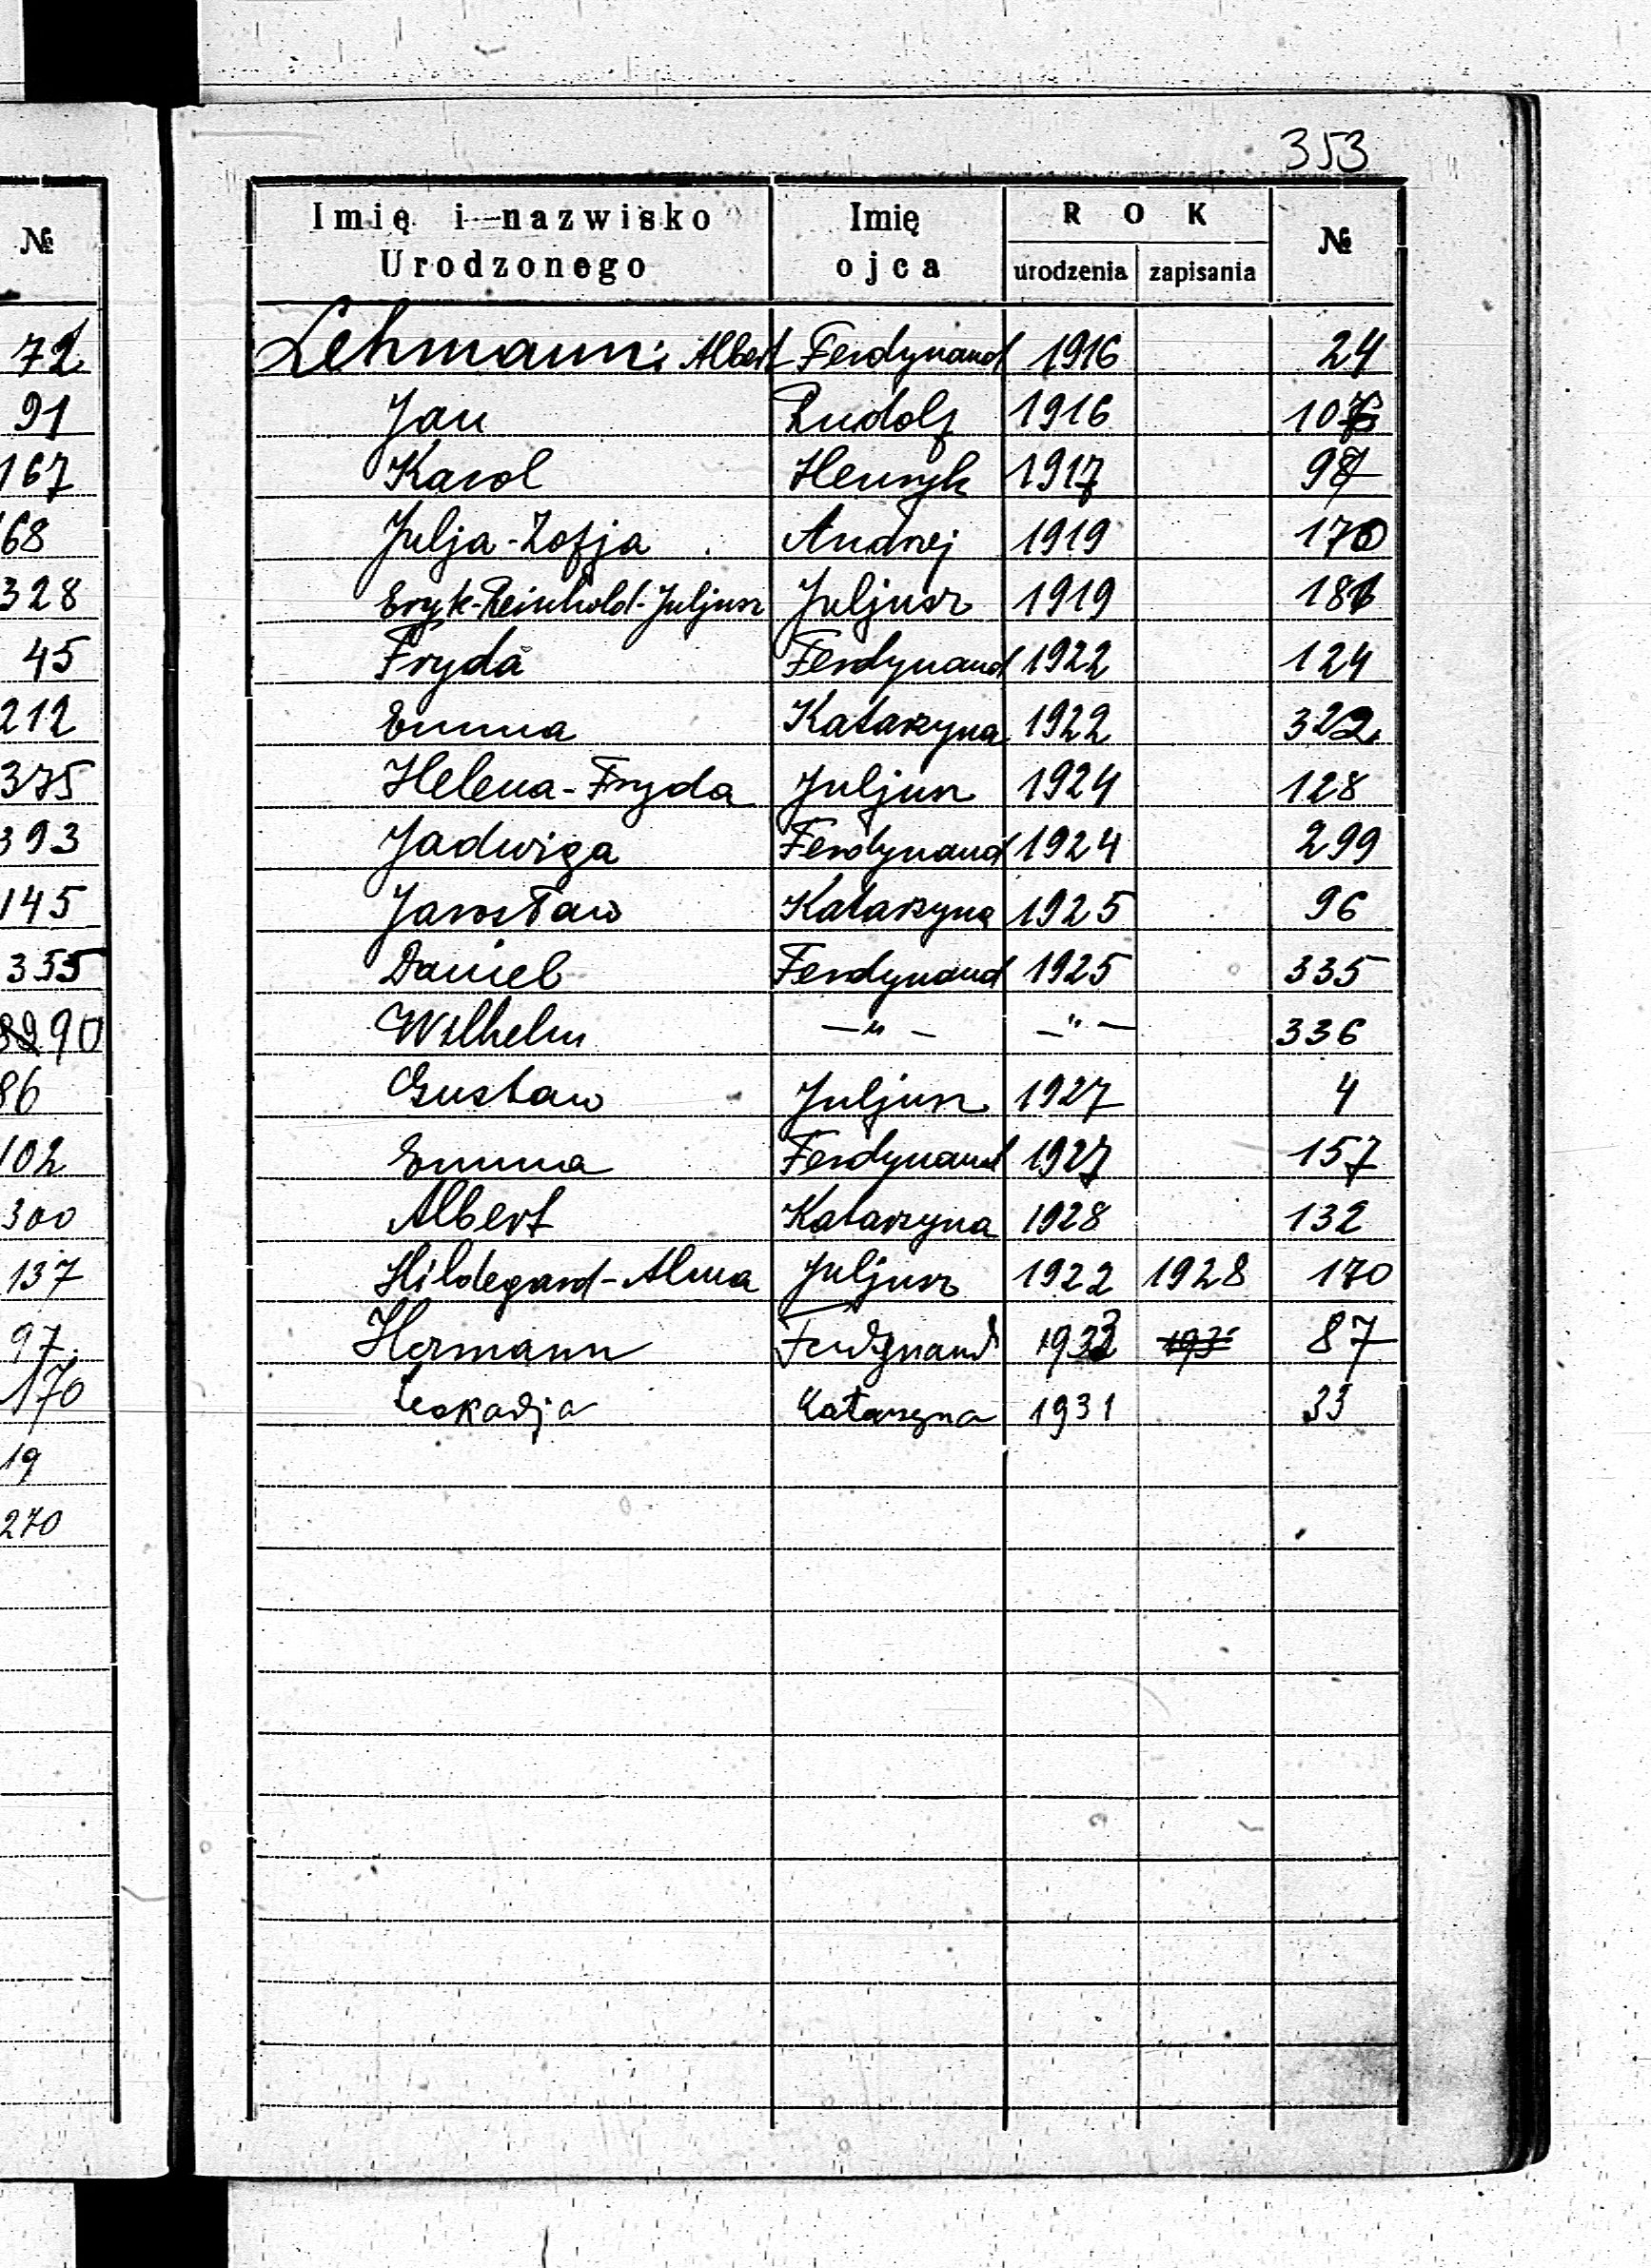 353
№
72
91
167
68
328
45
212
375
393
145
355
90
86
102
300
137
97
170
19
270
Imię i nazwisko Urodzonego | Imię ojca | ROK urodzenia | zapisania | №
Lehmann: Albert Ferdynand 1916 24
Jan Rudolf 1916 107
Karol Henryk 1917 98
Julja-Zofja Andrzej 1919 170
Eryk-Reinhold-Juljusz Juljusz 1919 186
Fryda Ferdynand 1922 124
Emma Katarzyna 1922 322
Helena-Fryda Juljusz 1924 128
Jadwiga Ferdynand 1924 299
Jarosław Katarzyna 1925 96
Daniel Ferdynand 1925 335
Wilhelm —"— —"— 336
Gustaw Juljusz 1927 4
Emma Ferdynand 1927 157
Albert Katarzyna 1928 132
Hildegard-Alma Juljusz 1922 1928 170
Hermann Ferdynand 1933 87
Leokadja Katarzyna 1931 33